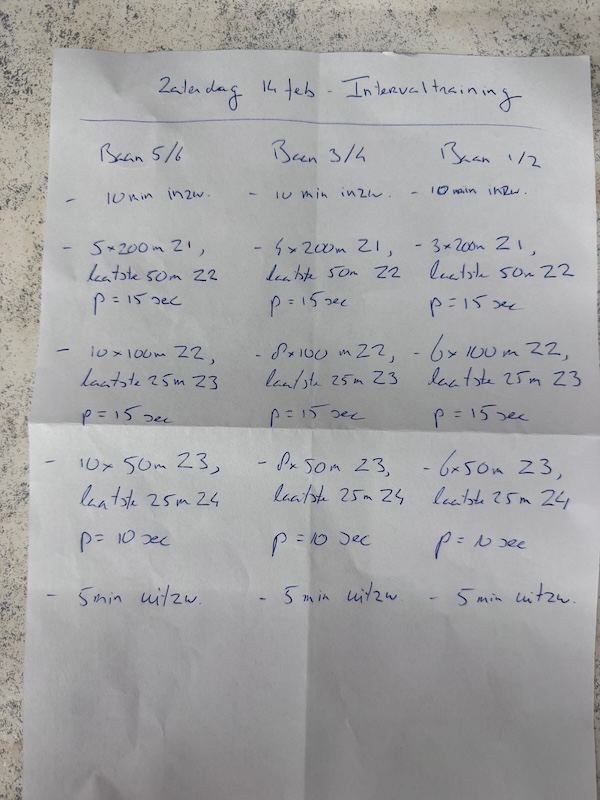 Zaterdag 14 feb - Intervaltraining
Baan 5/6
- 10 min inzw.
- 5x200m Z1,
laatste 50m Z2
p = 15 sec
- 10x100m Z2,
laatste 25m Z3
p = 15 sec
- 10x 50m Z3,
laatste 25m Z4
p = 10 sec
- 5 min uitzw.
Baan 3/4
- 10 min inzw.
- 4x200m Z1,
laatste 50m Z2
p = 15 sec
- 8x100 m Z2,
laatste 25m Z3
p = 15 sec
- 8x 50m Z3,
laatste 25m Z4
p = 10 sec
- 5 min uitzw.
Baan 1/2
- 10 min inzw.
- 3x200m Z1,
laatste 50m Z2
p = 15 sec
- 6x100m Z2,
laatste 25m Z3
p = 15 sec
- 6x50m Z3,
laatste 25m Z4
p = 10 sec
- 5 min uitzw.